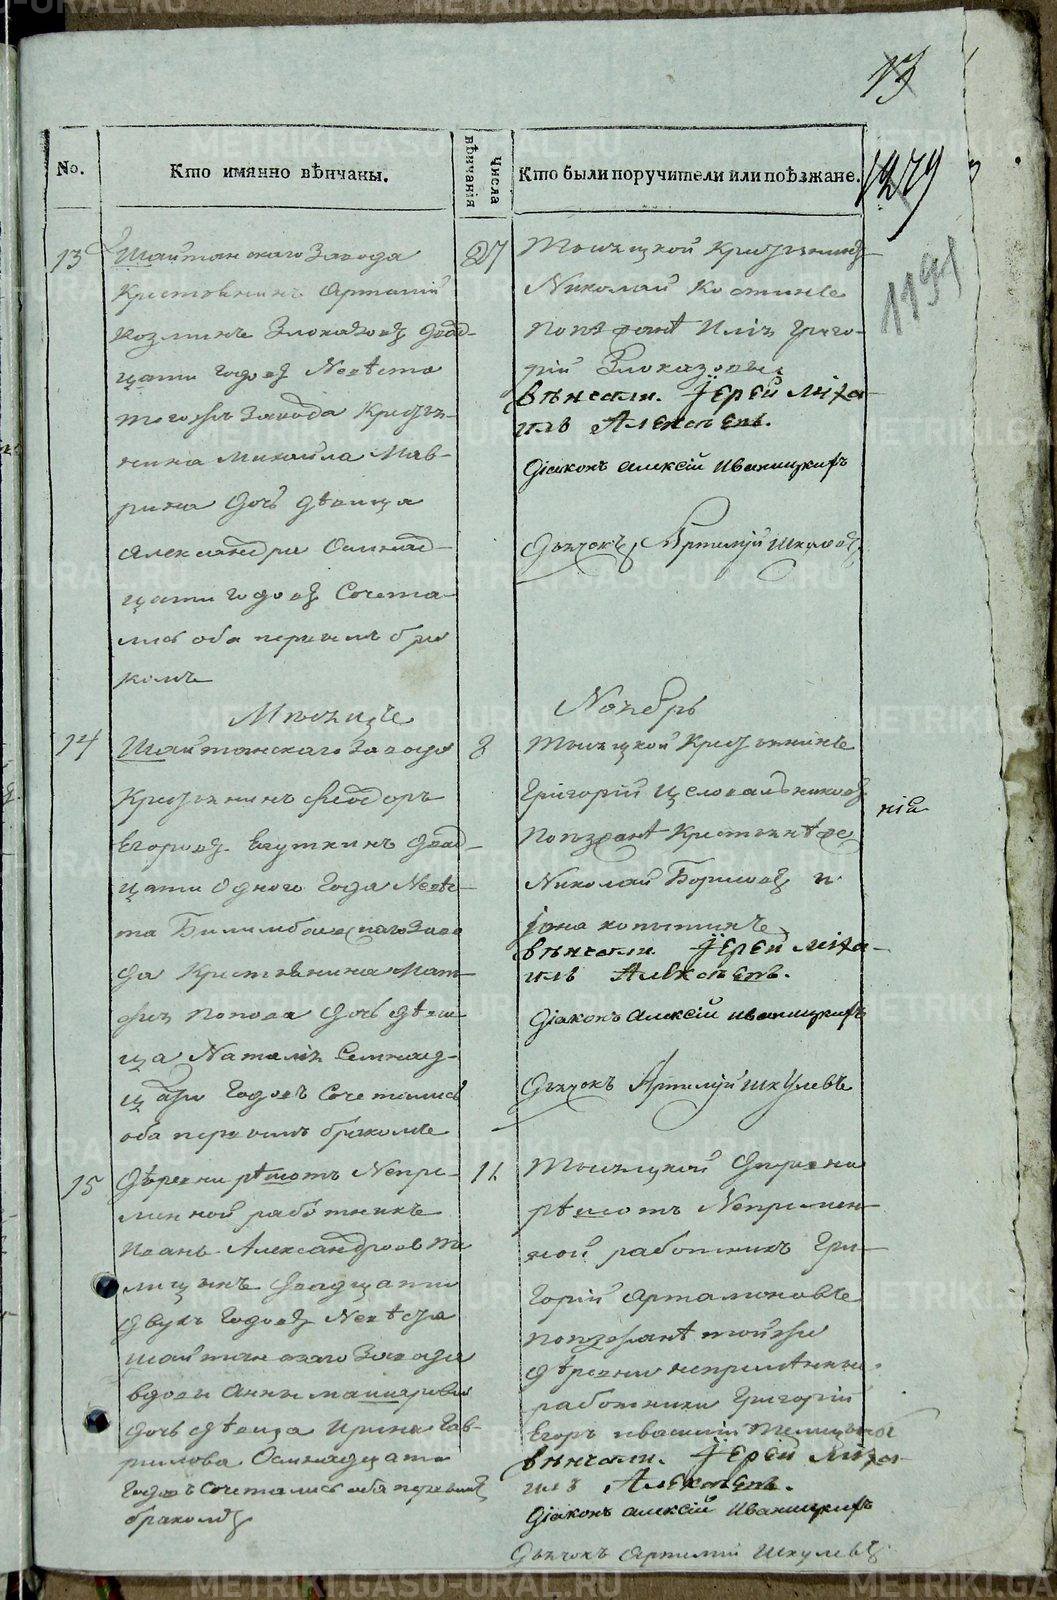 13
1279
1191
No.
Кто имянно вѣнчаны.
Числа вѣнчанія
Кто были поручители или поѣзжане.
13
Шайтанскаго Завода
Крестьянинъ Артамій
Козминъ Злоказовъ двад-
цати годовъ Невѣста
тогожъ Завода Кресть-
янина Михайла Мав-
рина дочь дѣвица
Александра Осмнад-
цати годовъ Сочета-
лись оба первымъ бра
комъ
27
Тысяцкой Крестьянинъ
Николай Костинъ
Поѣзжанѣ Илья Григо-
рій Злоказовы
вѣнчали. Іерей Миха-
илъ Алексѣевъ.
Діаконъ Алексій Иваницкихъ
Дьячокъ Артемій Шкулевъ
Мѣсяцъ
Ноябрь
14
Шайтанскаго Завода
Крестьянинъ Феодоръ
Егоровъ Ватуткинъ двад-
цати Одного Года Невѣс-
та Билимбаевскаго Заво
да Крестьянина Мат-
фѣя Попова дочь дѣви-
ца Наталія Семнад-
цати Годовъ Сочетались
оба первымъ бракомъ
8
Тысяцкой Крестьянинъ
Григорій Целовальниковъ
Поѣзжанѣ Крестьянѣ
Николай Борисовъ и
Іона Копытинъ
вѣнчали. Іерей Миха-
илъ Алексѣевъ.
Діаконъ Алексій Иваницкихъ
Дьячокъ Артемій Шкулевъ
нія
15
Деревни рѣшотъ Непре-
менной работникъ
Иванъ Александровъ Те
лицынъ двадцати
двухъ Годовъ Невѣста
Шайтанскаго Завода
вдовы Анны
дочь дѣвица Ирина Гав-
рилова Осмнадцати
Годовъ Сочетались оба первымъ
бракомъ
11
Тысяцкой Деревни
рѣшотъ Непремен-
ной работникъ Гри-
горій Артамоновъ
Поѣзжанѣ тойжѣ
деревни непремѣнные
работники Григорій
Егоръ Василій Телицыны
вѣнчали. Іерей Миха-
илъ Алексѣевъ.
Діаконъ Алексій Иваницкихъ
Дьячокъ Артемій Шкулевъ
METRIKI.GASO-URAL.RU